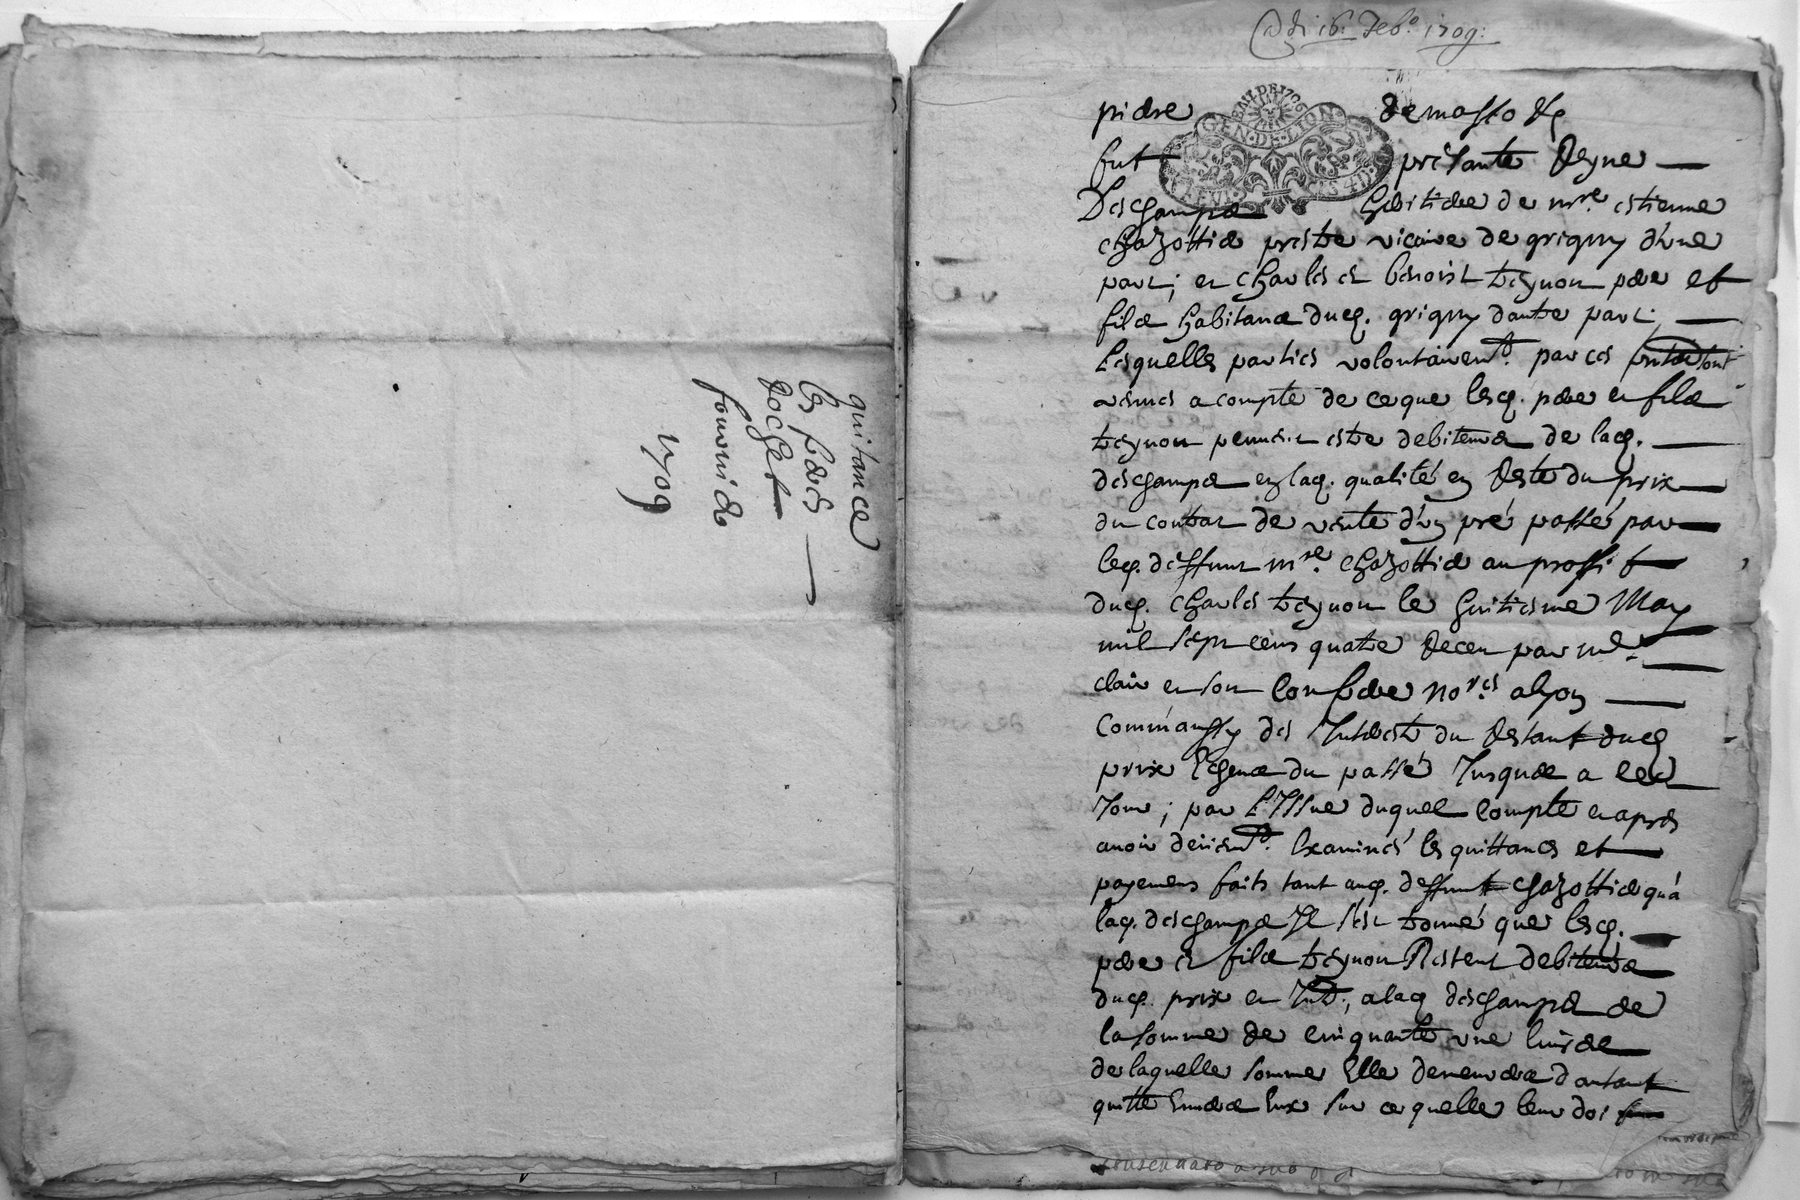 quitance
les pères
Rochet
fourni de
1709
16: feb.º 1709:
GEN·DE·LION
fut présante Reyne
Deschamps héritière de mre. estienne
chazottier prestre vicaire de grigny d'une
part; et charles et benoist treynon père et
fils habitans dud. grigny d'autre part;
Lesquelles parties volontairemt. par ces pntes sont
venues a compte de ce que lesd. père et fils
treynon peuvent estre debiteurs de lad.
deschamps en lad. qualité en Reste du prix
du contrat de vente d'un pré passé par
led. deffunt mre. chazottier au proffit
dud. charles treynon le huitiesme May
mil sept cens quatre Receu par me.
clair et son Confrère nores. a lyon
Comm'aussy des Interests du Restant dud
prix Escheus du passé Jusques a ced
Jour; par l'Issue duquel Compte et après
avoir deuemt. Examinés les quittances et
payemens faits tant aud. deffunt chazottier qu'a
lad. deschamps Il s'est trouvé que lesd.
père et fils treynon Restent debiteurs
dud. prix et Int.; a lad deschamps de
la somme de cinquante une livres
de laquelle somme Elle demeurera d'autant
quitte Envers Eux sur ce quelle leur doi